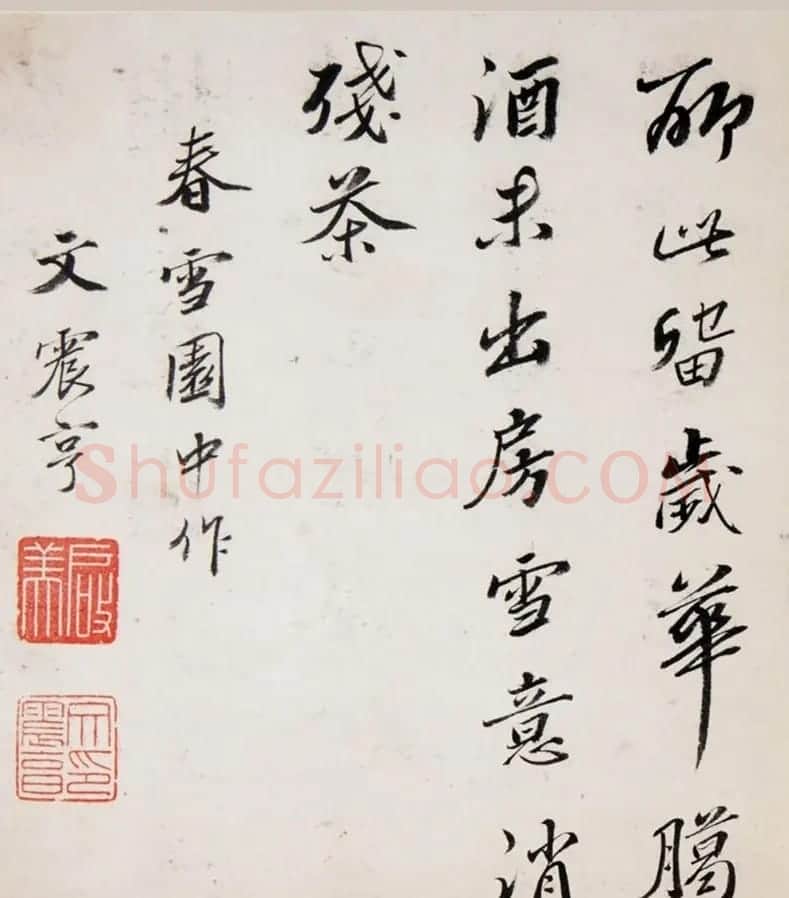 聊此留歲華臈
酒未出房雪意消
殘茶
春雪園中作
文震亨
啟美
文震亨印
Shufaziliao.COM